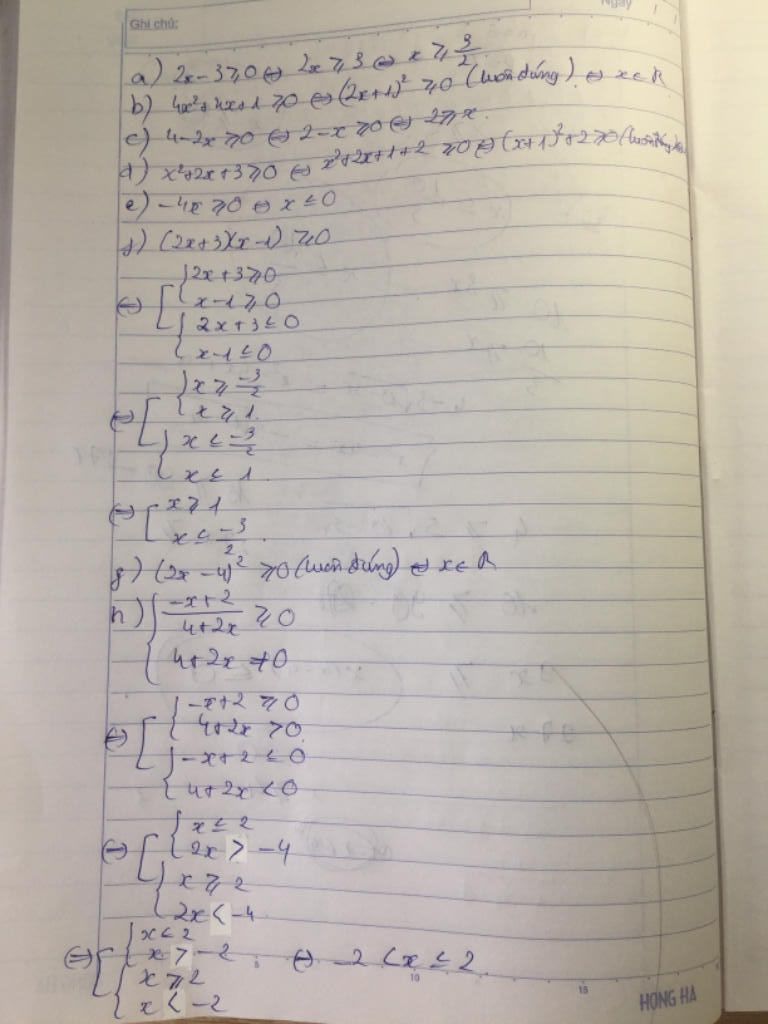 Ghi chú:
Ngày
a) 2x-3 ≥ 0 ⇔ 2x ≥ 3 ⇔ x ≥ 3/2
b) 4x²+4x+1 ≥ 0 ⇔ (2x+1)² ≥ 0 (luôn đúng) ⇔ x ∈ R
c) 4-2x ≥ 0 ⇔ 2-x ≥ 0 ⇔ 2 ≥ x.
d) x²+2x+3 ≥ 0 ⇔ x²+2x+1+2 ≥ 0 ⇔ (x+1)²+2 ≥ 0 (luôn đúng)
e) -4x ≥ 0 ⇔ x ≤ 0
f) (2x+3)(x-1) ≥ 0
2x+3 ≥ 0
⇔ x-1 ≥ 0
2x+3 ≤ 0
x-1 ≤ 0
x ≥ -3/2
⇔ x ≥ 1
x ≤ -3/2
x ≤ 1
⇔ x ≥ 1
x ≤ -3/2
g) (2x-4)² ≥ 0 (luôn đúng) ⇔ x ∈ R
h) (-x+2)/(4+2x) ≥ 0
4+2x ≠ 0
-x+2 ≥ 0
⇔ 4+2x > 0
-x+2 ≤ 0
4+2x < 0
x ≤ 2
⇔ 2x > -4
x ≥ 2
2x < -4
x ≤ 2
⇔ x > -2 ⇔ -2 < x ≤ 2
x ≥ 2
x < -2
10
15
HONG HA